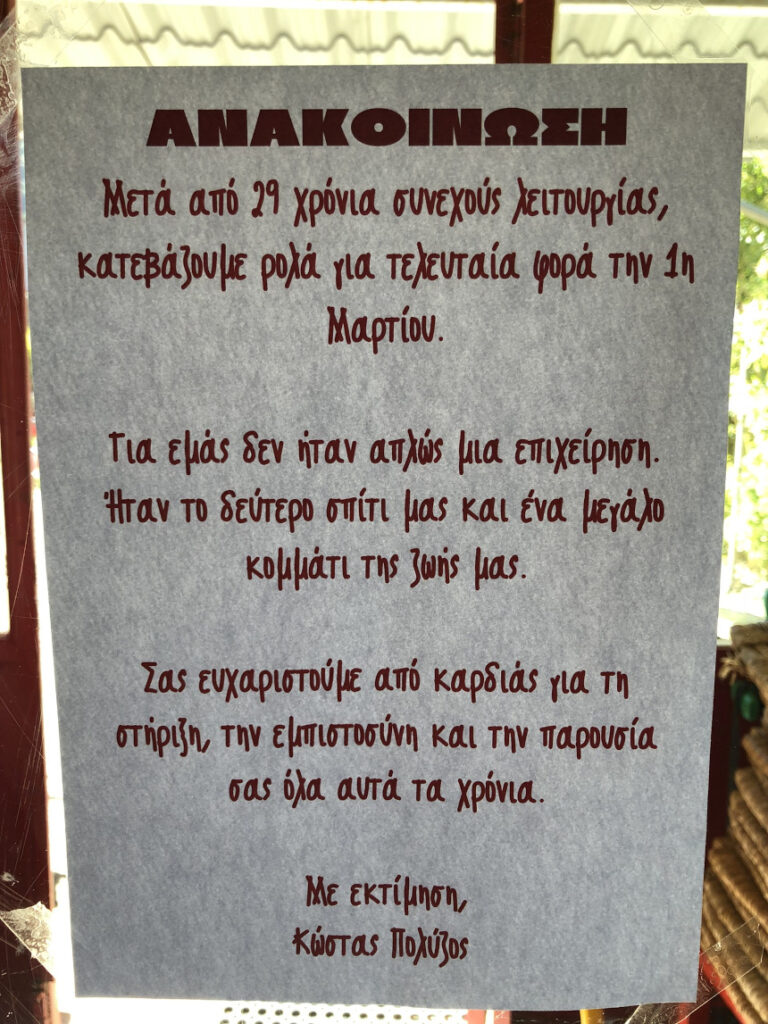 ΑΝΑΚΟΙΝΩΣΗ
Μετά από 29 χρόνια συνεχούς λειτουργίας,
κατεβάζουμε ρολά για τελευταία φορά την 1η
Μαρτίου.
Για εμάς δεν ήταν απλώς μια επιχείρηση.
Ήταν το δεύτερο σπίτι μας και ένα μεγάλο
κομμάτι της ζωής μας.
Σας ευχαριστούμε από καρδιάς για τη
στήριξη, την εμπιστοσύνη και την παρουσία
σας όλα αυτά τα χρόνια.
Με εκτίμηση,
Κώστας Πολύζος